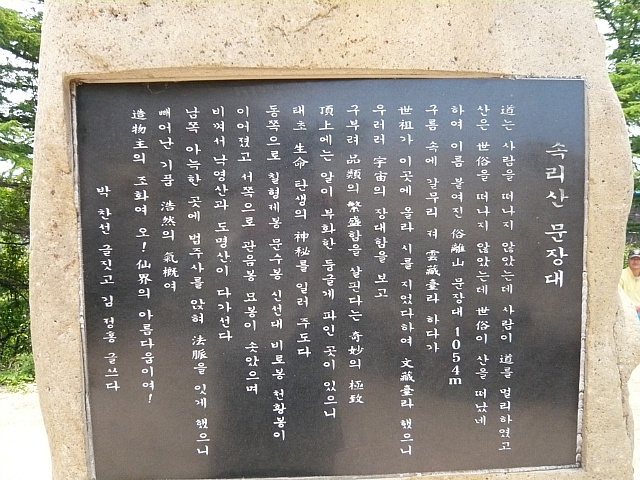 속리산 문장대
道는 사람을 떠나지 않았는데 사람이 道를 멀리하였고
산은 世俗을 떠나지 않았는데 世俗이 산을 떠났네
하여 이름 붙여진 俗離山 문장대 1054m
구름 속에 갈무리 져 雲藏臺라 하다가
世祖가 이곳에 올라 시를 지었다하여 文藏臺라 했으니
우러러 宇宙의 장대함을 보고
구부려 品類의 繁盛함을 살핀다는 奇妙의 極致
頂上에는 알이 부화한 둥글게 파인 곳이 있으니
태초 生命 탄생의 神秘를 일러 주도다
동쪽으로 칠형제봉 문수봉 신선대 비로봉 천황봉이
이어졌고 서쪽으로 관음봉 묘봉이 솟았으며
비껴서 낙영산과 도명산이 다가선다
남쪽 아늑한 곳에 법주사를 앉혀 法脈을 잇게 했으니
빼어난 기품 浩然의 氣槪여
造物主의 조화여 오! 仙界의 아름다움이여!
박찬선 글짓고 김 정홍 글쓰다